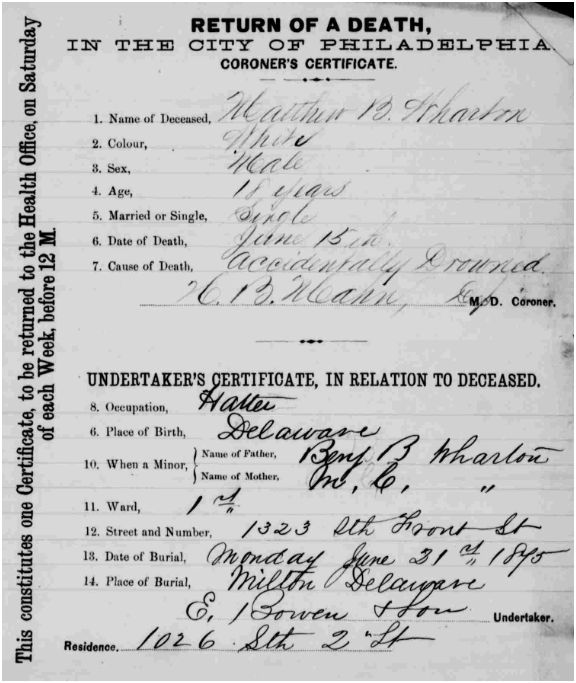 RETURN OF A DEATH,
IN THE CITY OF PHILADELPHIA.
CORONER'S CERTIFICATE.
1. Name of Deceased, Matthew B. Wharton
2. Colour, White
3. Sex, Male
4. Age, 18 years
5. Married or Single, Single
6. Date of Death, June 15th.
7. Cause of Death, accidentally Drowned.
M. D. Coroner.
UNDERTAKER'S CERTIFICATE, IN RELATION TO DECEASED.
8. Occupation, Hatter
6. Place of Birth, Delaware
10. When a Minor, { Name of Father, Benj B Wharton
Name of Mother, M. C. "
11. Ward, 1st
12. Street and Number, 1323 Sth Front St
13. Date of Burial, Monday June 21st 1875
14. Place of Burial, Milton Delaware
E. Bowen & Son Undertaker.
Residence. 1026 Sth 2" St
This constitutes one Certificate, to be returned to the Health Office, on Saturday
of each Week, before 12 M.